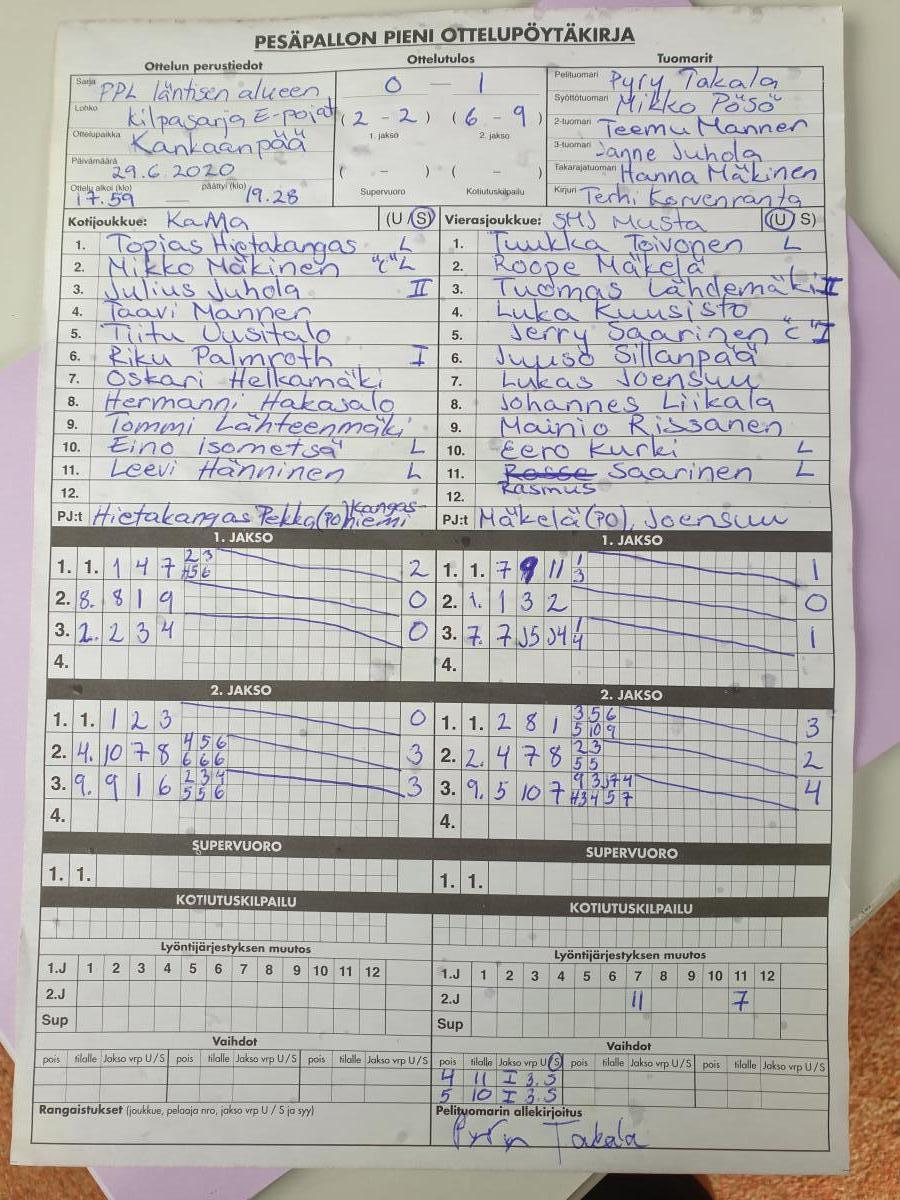 PESÄPALLON PIENI OTTELUPÖYTÄKIRJA
Ottelun perustiedot Ottelutulos Tuomarit
Sarja PPL läntisen alueen
Lohko kilpasarja E-pojat
Ottelupaikka Kankaanpää
Päivämäärä 29.6.2020
Ottelu alkoi (klo) 17.59 — päättyi (klo) 19.28
0 — 1
(2 - 2) (6 - 9)
1. jakso 2. jakso
( - ) ( - )
Supervuoro Kotiutuskilpailu
Pelituomari Pyry Takala
Syöttötuomari Mikko Pösö
2-tuomari Teemu Manner
3-tuomari Janne Juhola
Takarajatuomari Hanna Mäkinen
Kirjuri Terhi Korvenranta
Kotijoukkue: KaMa (U/S)
1. Topias Hietakangas L
2. Mikko Mäkinen "C" L
3. Julius Juhola II
4. Taavi Manner
5. Tiitu Uusitalo
6. Riku Palmroth I
7. Oskari Helkamäki
8. Hermanni Hakasalo
9. Tommi Lähteenmäki
10. Eino Isometsä L
11. Leevi Hänninen L
12.
PJ:t Hietakangas Pekka(PO) Kangasniemi
Vierasjoukkue: SMJ Musta (U/S)
1. Tuukka Toivonen L
2. Roope Mäkelä
3. Tuomas Lähdemäki II
4. Luka Kuusisto
5. Jerry Saarinen "C" I
6. Juuso Sillanpää
7. Lukas Joensuu
8. Johannes Liikala
9. Mainio Rissanen
10. Eero Kurki L
11. Saarinen L
Rasmus
12.
PJ:t Mäkelä (PO), Joensuu
1. JAKSO
1. 1. 1 4 7 2 3 2
4 5 6
2. 8. 8 1 9 0
3. 2. 2 3 4 0
4.
1. JAKSO
1. 1. 7 9 11 1 1
3
2. 1. 1 3 2 0
3. 7. 7 J5 J4 1 1
4
4.
2. JAKSO
1. 1. 1 2 3 0
2. 4. 10 7 8 4 5 6 3
6 6 6
3. 9. 9 1 6 2 3 4 3
5 5 6
4.
2. JAKSO
1. 1. 2 8 1 3 5 6 3
5 10 9
2. 2. 4 7 8 2 3 2
5 5
3. 9. 5 10 7 9 3 J7 4 4
4 3 4 5 7
4.
SUPERVUORO
1. 1.
SUPERVUORO
1. 1.
KOTIUTUSKILPAILU
KOTIUTUSKILPAILU
Lyöntijärjestyksen muutos
1.J 1 2 3 4 5 6 7 8 9 10 11 12
2.J
Sup
Lyöntijärjestyksen muutos
1.J 1 2 3 4 5 6 7 8 9 10 11 12
2.J 11 7
Sup
Vaihdot
pois tilalle Jakso vrp U/S pois tilalle Jakso vrp U/S pois tilalle Jakso vrp U/S
Vaihdot
pois tilalle Jakso vrp U/S pois tilalle Jakso vrp U/S pois tilalle Jakso vrp U/S
4 11 I 3. S
5 10 I 3. S
Rangaistukset (joukkue, pelaaja nro, jakso vrp U / S ja syy)
Pelituomarin allekirjoitus
Pyry Takala